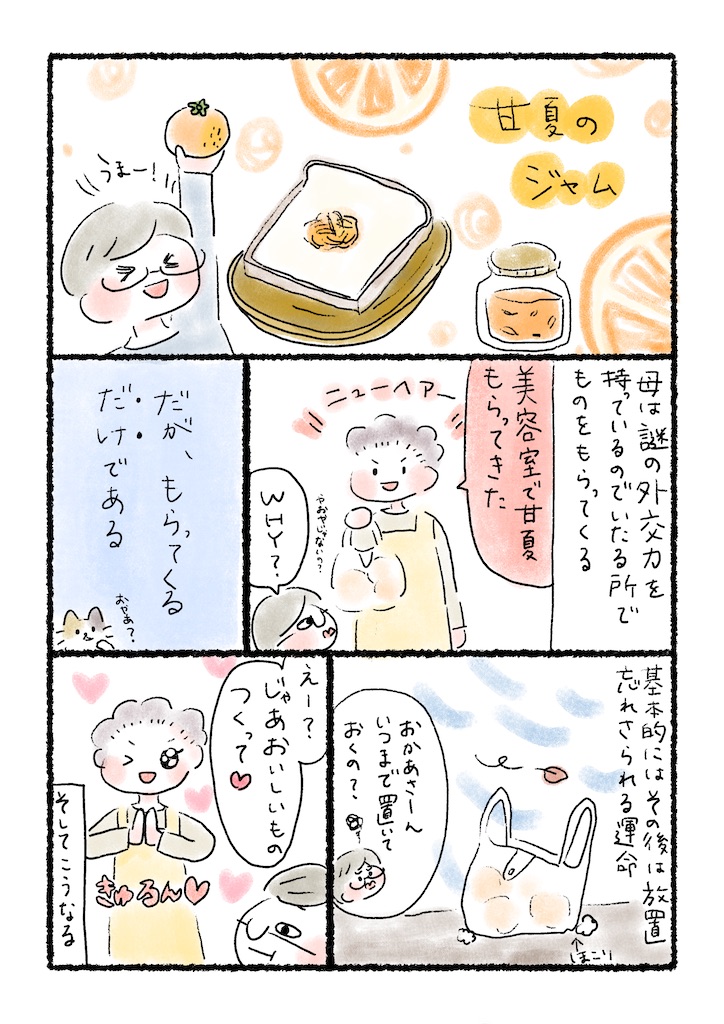 甘夏の
ジャム
うまー!
母は謎の外交力を
持っているのでいたる所で
ものをもらってくる
美容室で甘夏
もらってきた
ニューヘアー
WHY?
だが、もらってくる
だけである
おやぁ?
基本的にはその後は放置
忘れさられる運命
おかあさーん
いつまで置いて
おくの?
ほこり
えー?
じゃあおいしいもの
つくって
きゅるん
そしてこうなる